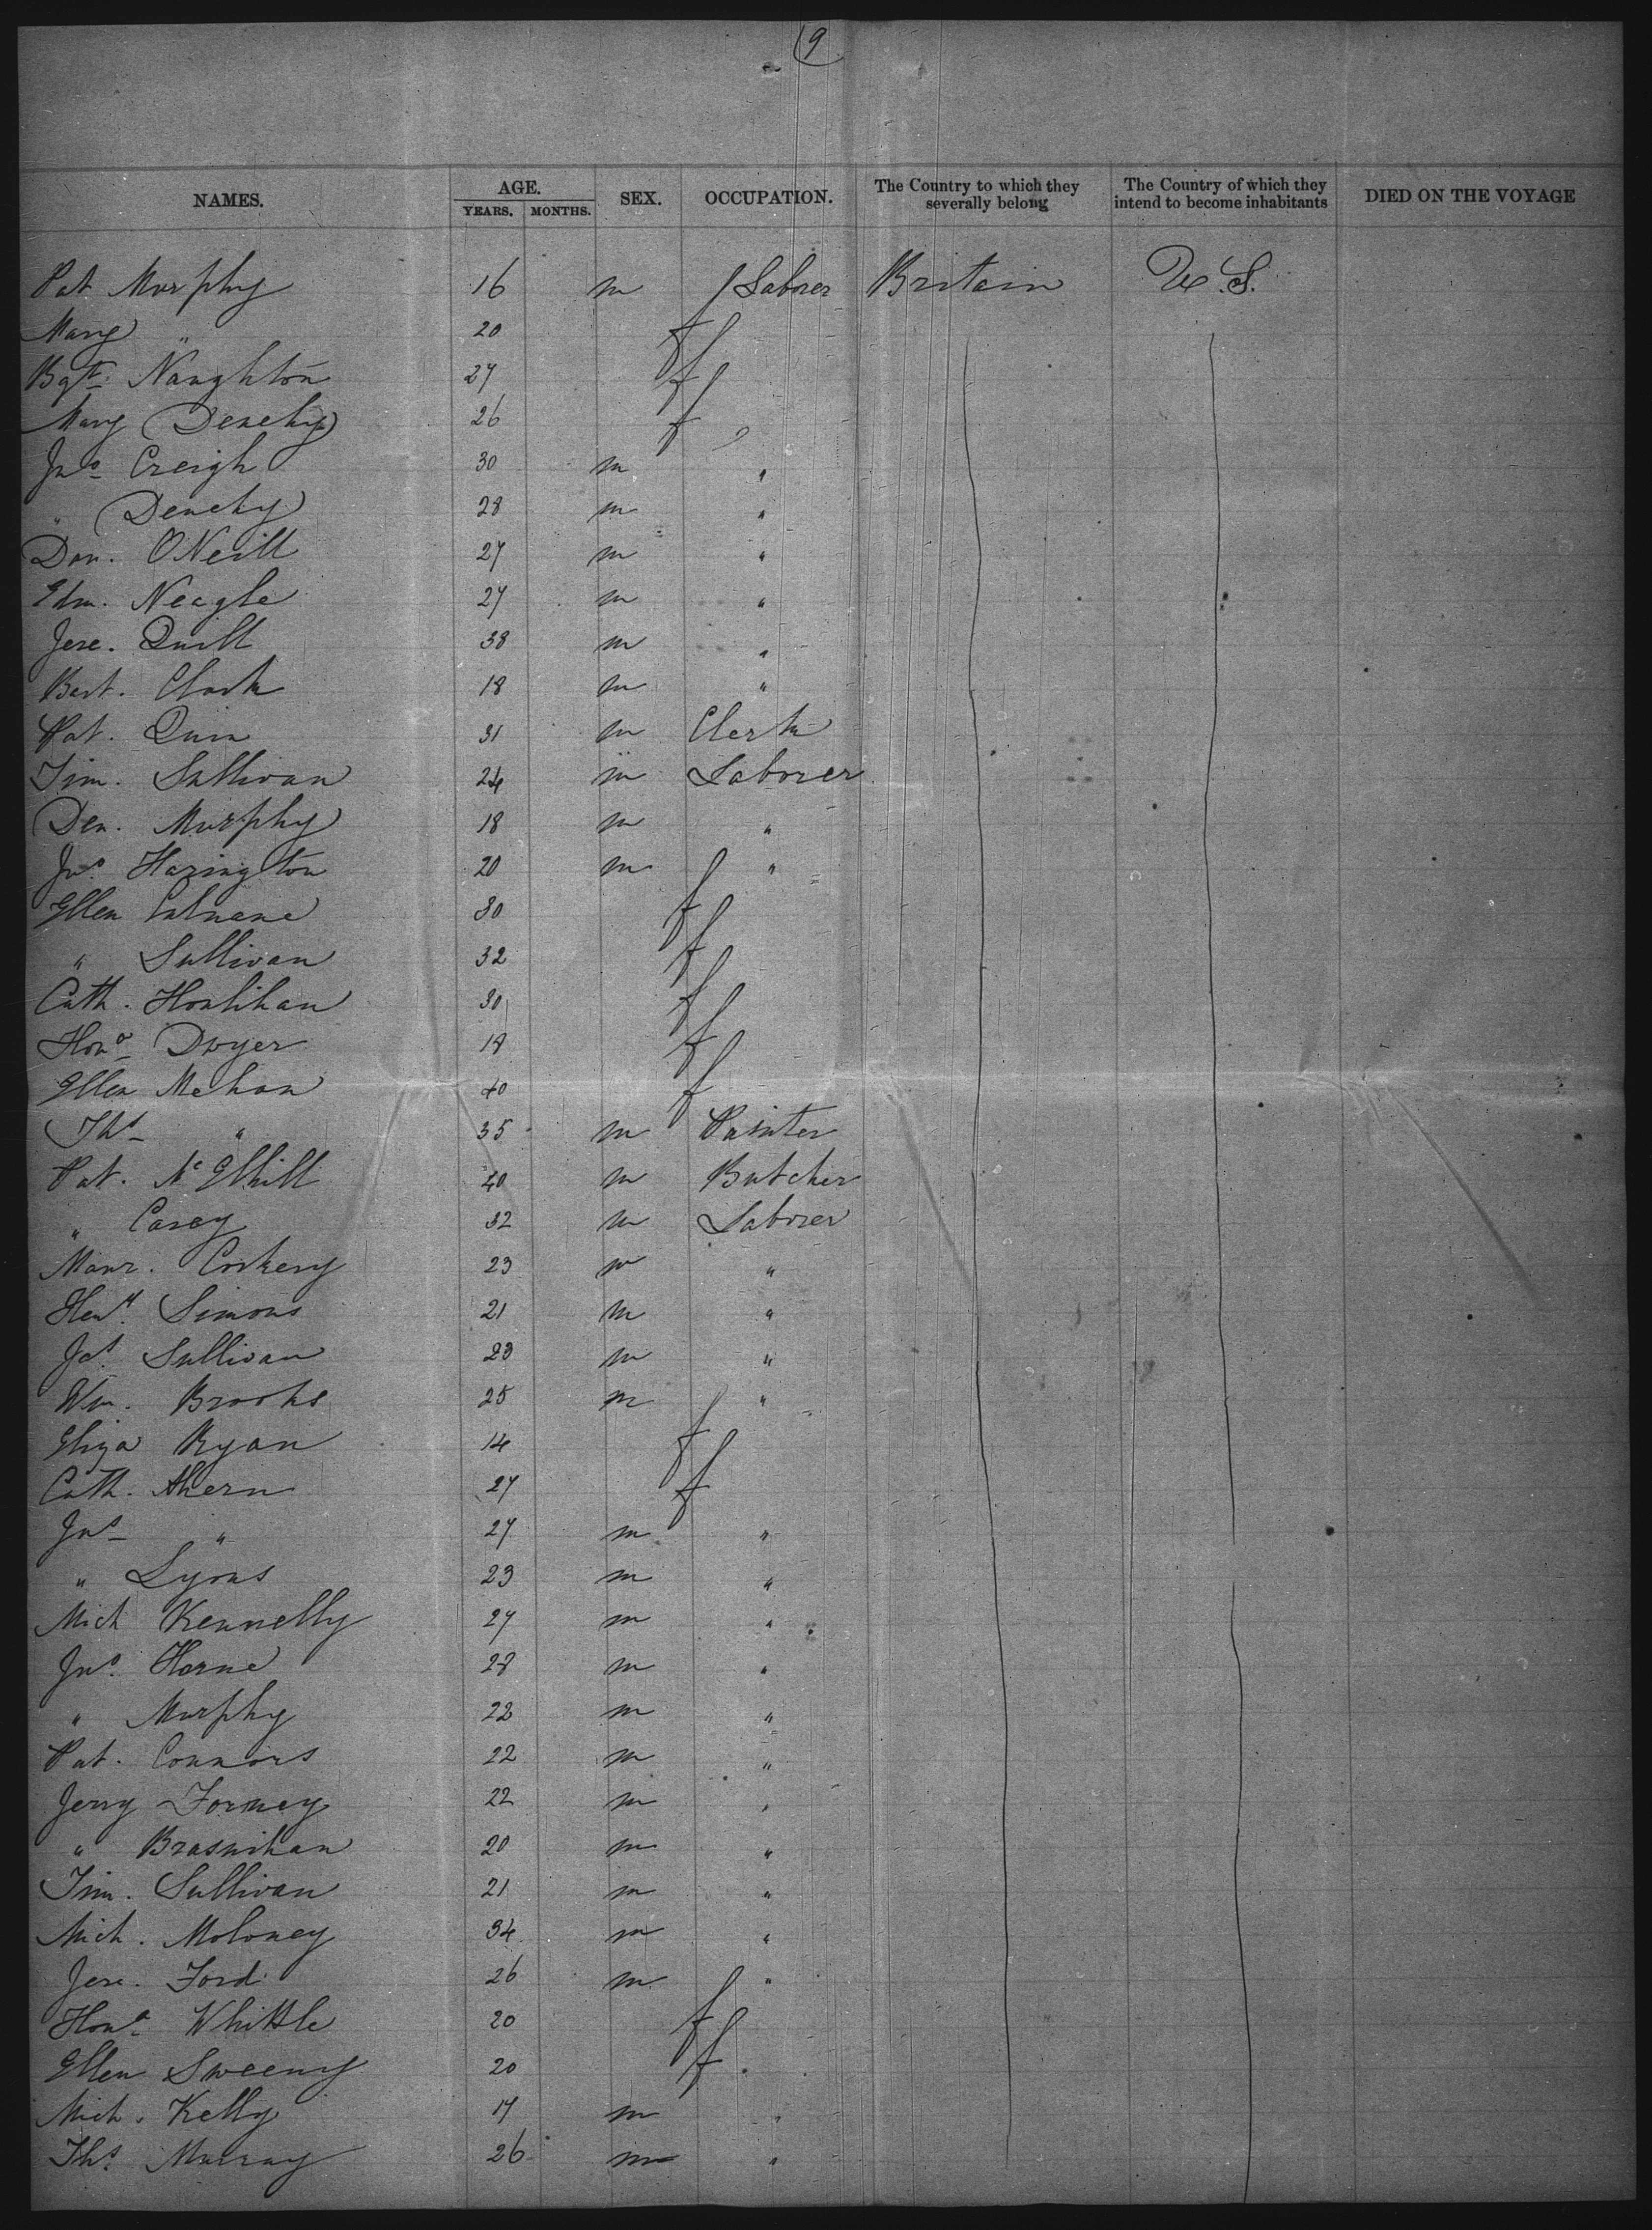 9
NAMES. AGE. YEARS. MONTHS. SEX. OCCUPATION. The Country to which they severally belong The Country of which they intend to become inhabitants DIED ON THE VOYAGE
Pat Murphy 16 m Laborer Britain U.S.
Mary " 20 f
Bgt. Naughton 27 f
Mary Denehy 26 f
Jno Creigh 30 m "
" Denehy 28 m "
Dan. ONeill 27 m "
Edm. Neagle 27 m "
Jere. Quill 38 m "
Bart. Clark 18 m "
Pat. Quin 31 m Clerk
Tim. Sullivan 24 m Laborer
Den. Murphy 18 m "
Jno. Harington 20 m "
Ellen 30 f
" Sullivan 32 f
Cath. Houlihan 30 f
Hona Dwyer 18 f
Ellen Mehan 40 f
Ths " 35 m Painter
Pat. McElhill 40 m Butcher
" Casey 32 m Laborer
Maur. Corkery 23 m "
Heny. Simons 21 m "
Jas. Sullivan 23 m "
Wm. Brooks 25 m "
Eliza Ryan 14 f
Cath. Ahern 27 f
Jno " 27 m "
" Lyons 23 m "
Mich Kennelly 27 m "
Jno. Horne 28 m "
" Murphy 22 m "
Pat. Connors 22 m "
Jerry 22 m "
" Brasnihan 20 m "
Tim. Sullivan 21 m "
Mich. Moloney 34 m "
Jere. Ford 26 m "
Hona Whittle 20 f
Ellen Sweeny 20 f
Mich. Kelly 17 m "
Ths. Mulray 26 m "